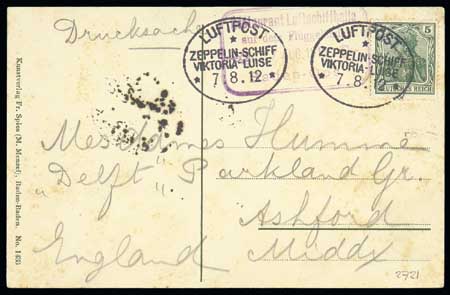 Drucksache
LUFTPOST
ZEPPELIN-SCHIFF
VIKTORIA-LUISE
* 7.8.12 *
Restaurant Luftschiffhalle
auf dem
LUFTPOST
ZEPPELIN-SCHIFF
VIKTORIA-LUISE
* 7.8.
5
DEUTSCHES REICH
Kunstverlag Fr. Spies (M. Menzel), Baden-Baden. No. 1635
Mesdames Humme
"Delft" Parkland Gr.
Ashford
Middx
England
2721